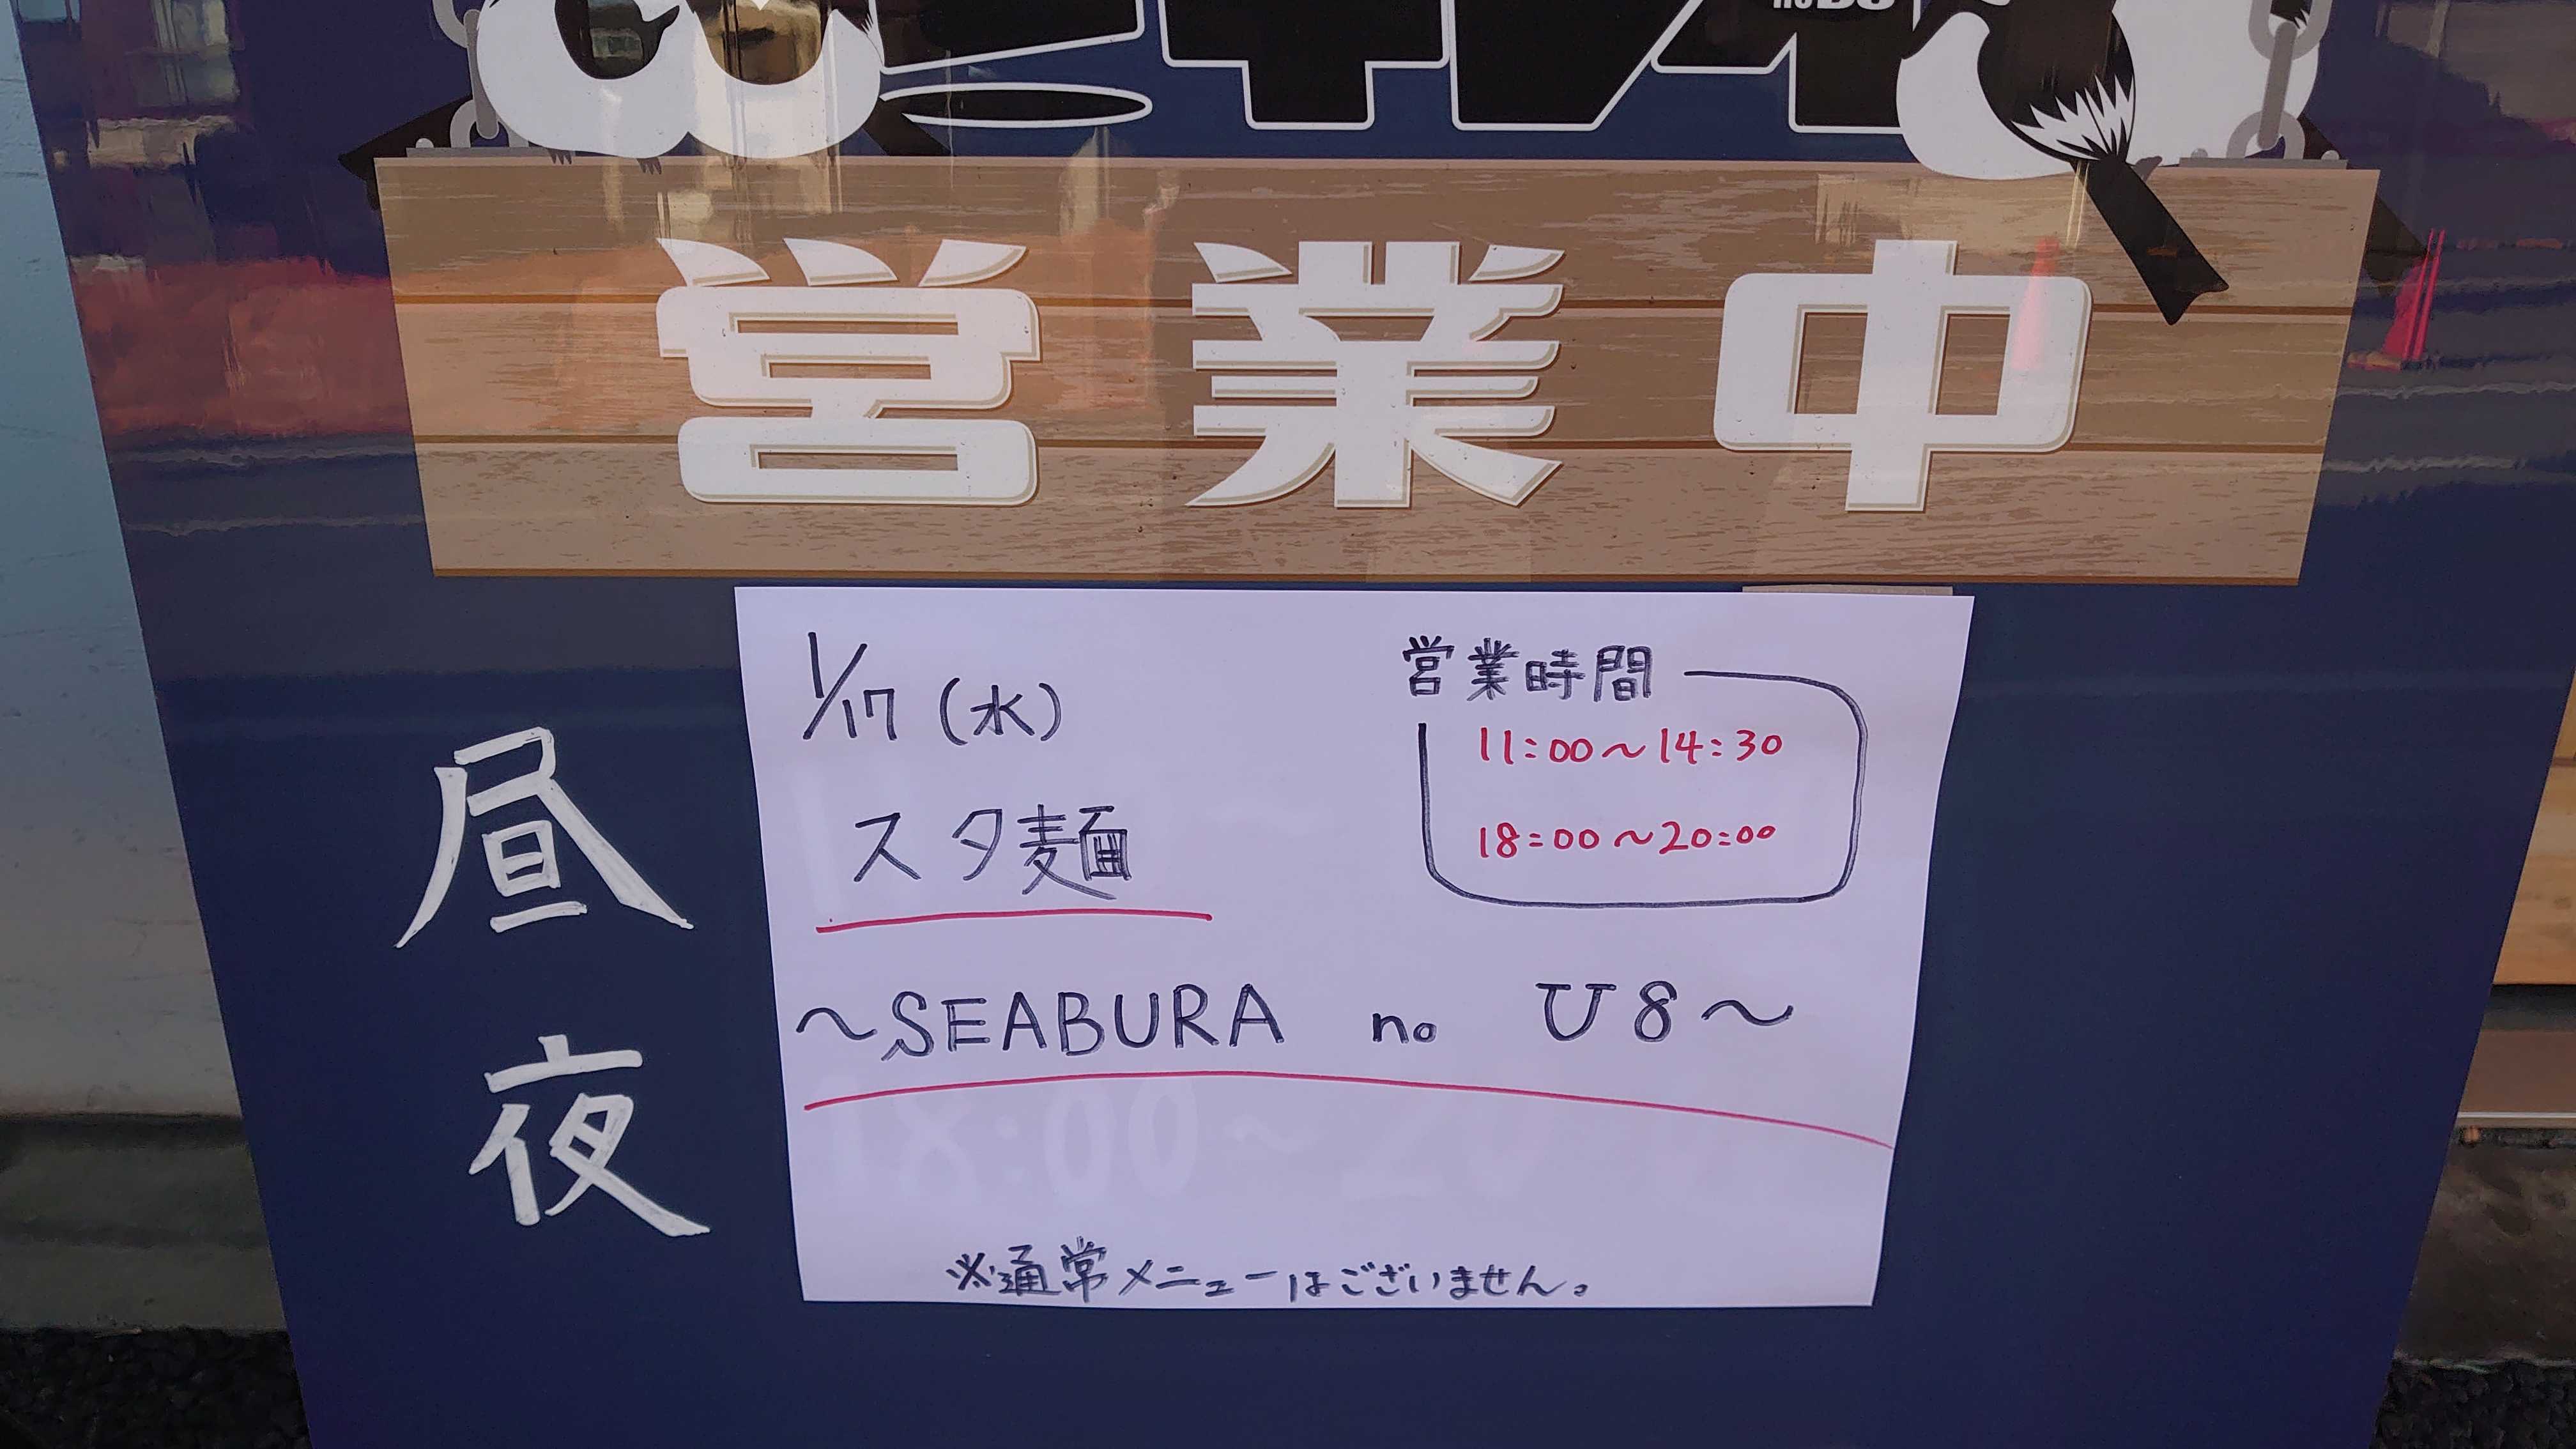 営業中
1/17(水)
スタ麺
営業時間
11:00～14:30
18:00～20:00
～SEABURA no ひ8～
※通常メニューはございません。
昼
夜